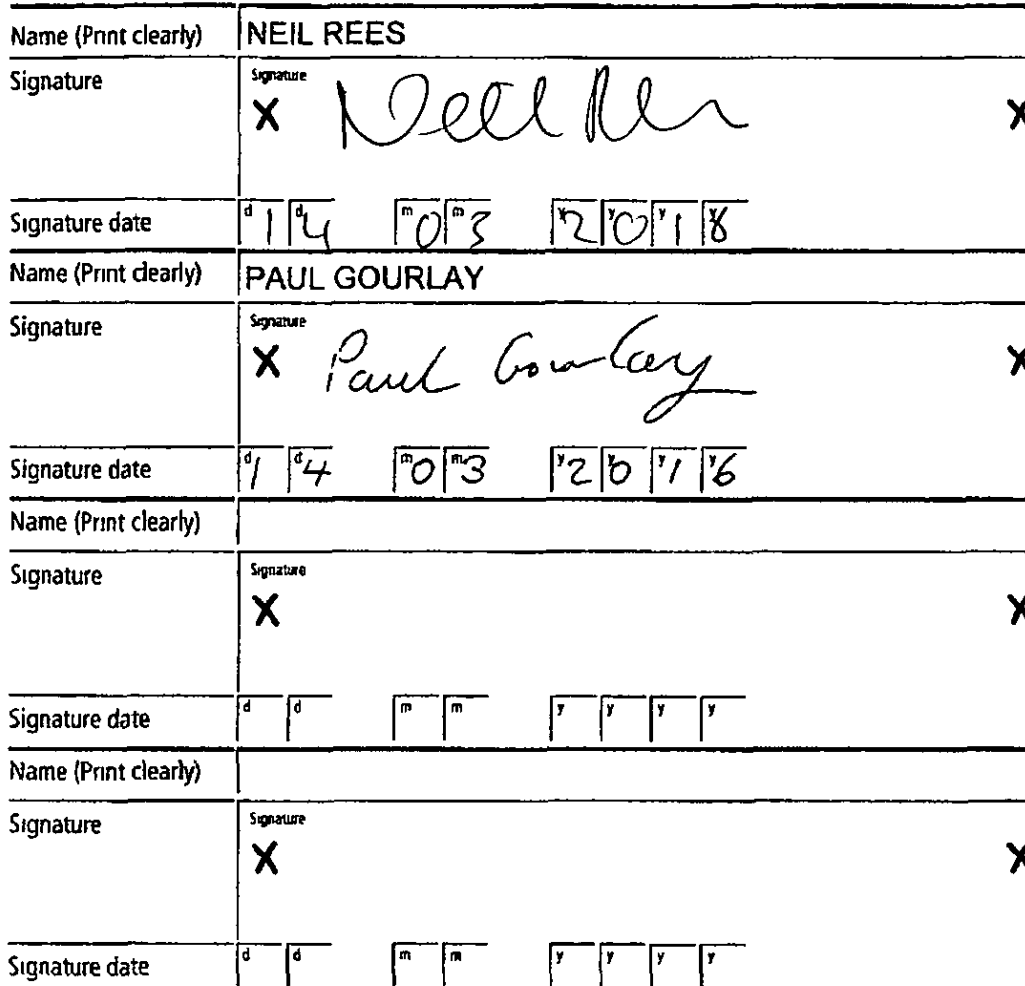 Name (Print clearly) NEIL REES
Signature Signature
X Neil Rees X
Signature date d 1 d 4 m 0 m 3 y 2 y 0 y 1 y 8
Name (Print clearly) PAUL GOURLAY
Signature Signature
X Paul Gourlay X
Signature date d 1 d 4 m 0 m 3 y 2 y 0 y 1 y 6
Name (Print clearly)
Signature Signature
X X
Signature date d d m m y y y y
Name (Print clearly)
Signature Signature
X X
Signature date d d m m y y y y